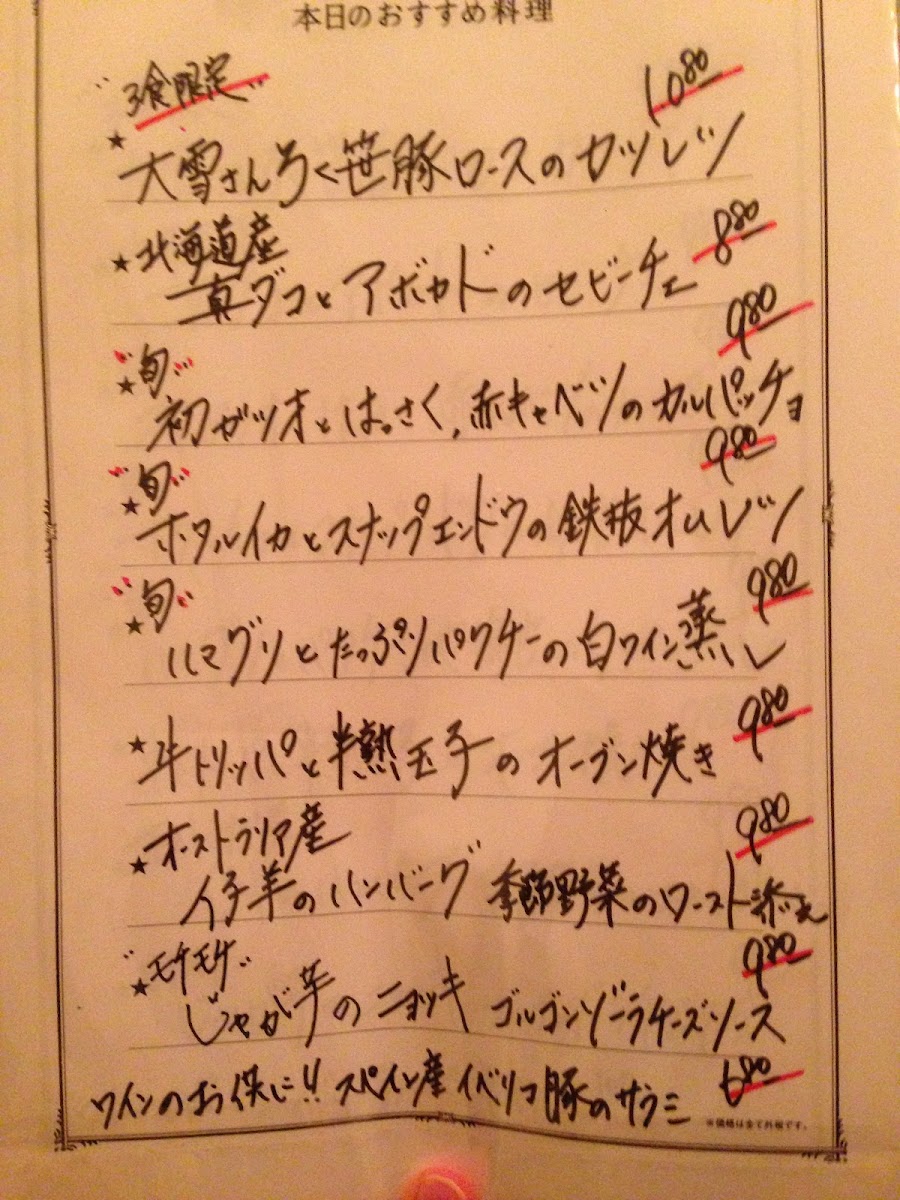 本日のおすすめ料理
"3食限定"
1080
★大雪さんろく笹豚ロースのカツレツ
★北海道産
880
真ダコとアボカドのセビーチェ
980
"旬"
★初ガツオとはっさく、赤キャベツのカルパッチョ
980
"旬"
★ホタルイカとスナップエンドウの鉄板オムレツ
980
"旬"
★ハマグリとたっぷりパクチーの白ワイン蒸し
980
★牛トリッパと半熟玉子のオーブン焼き
980
★オーストラリア産
仔羊のハンバーグ 季節野菜のロースト添え
980
★"モチモチ"
じゃが芋のニョッキ ゴルゴンゾーラチーズソース
680
ワインのお供に!! スペイン産イベリコ豚のサラミ
※価格は全て外税です。